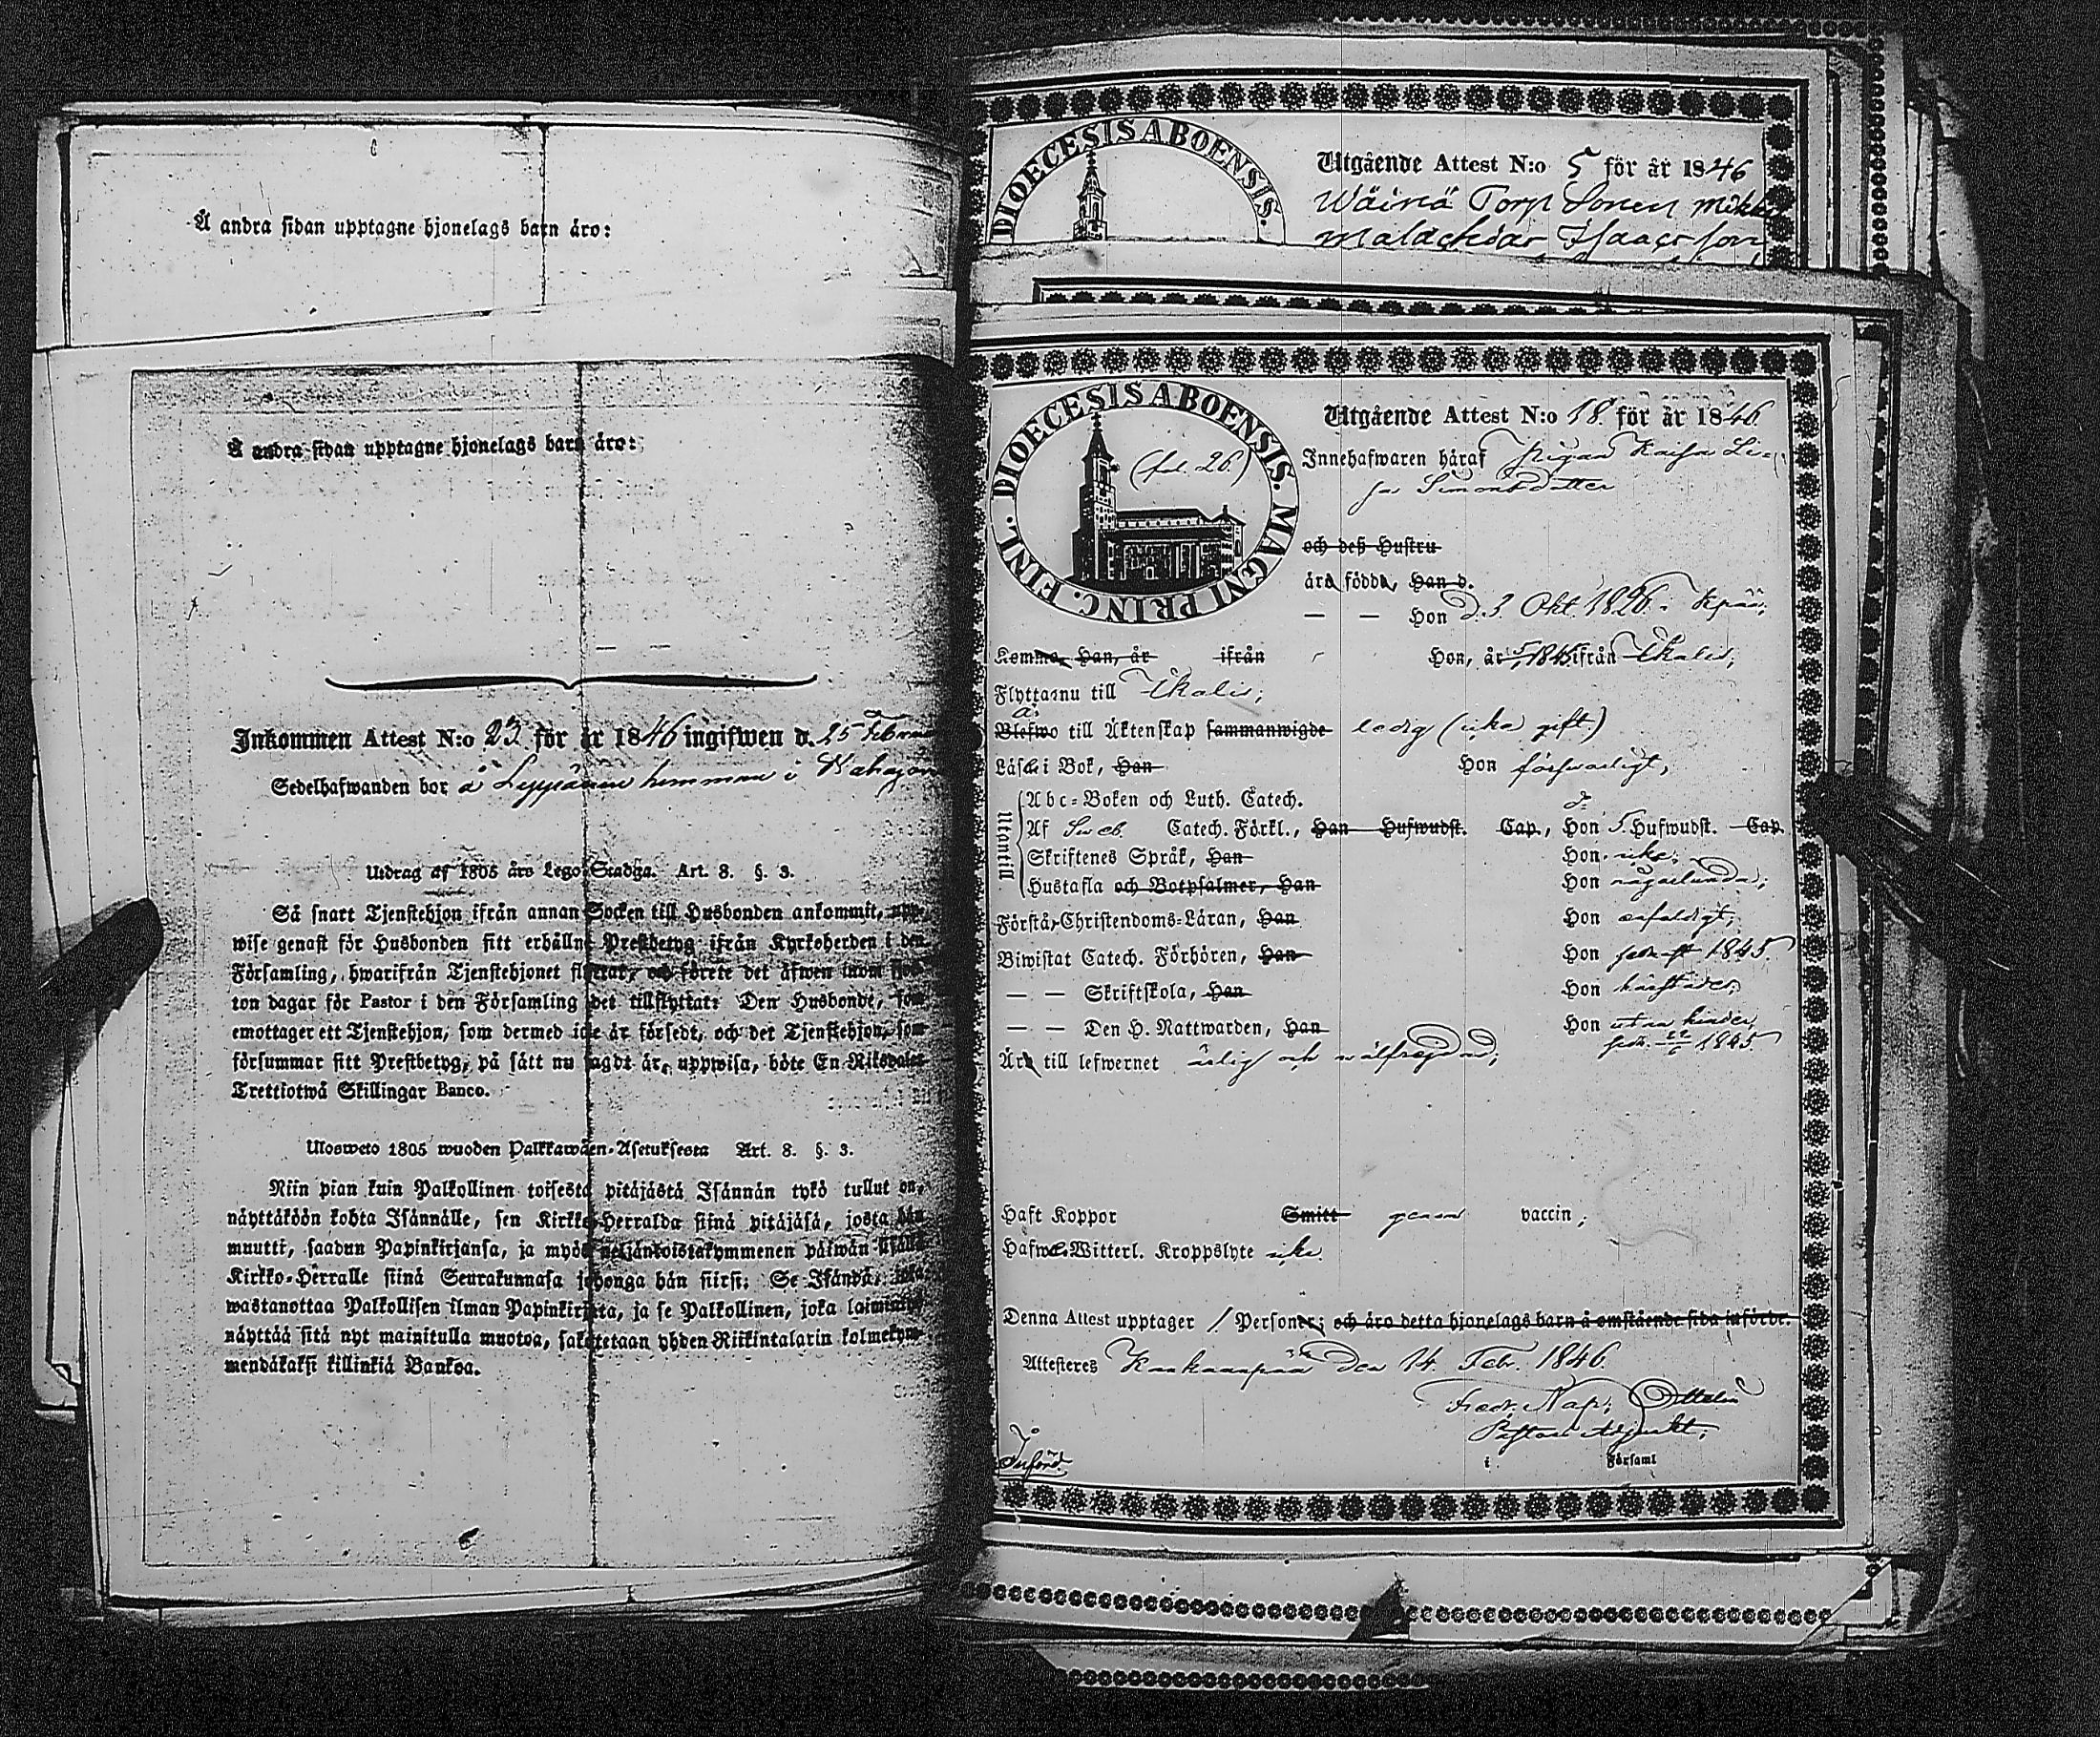 Å andra sidan upptagne hjonelags barn äro:
Å andra sidan upptagne hjonelags barn äro:
Inkommen Attest N:o 23 för år 1846 ingifwen d. 25 Februa
Sedelhafwanden bor å Leppänen hemman i
Utdrag af 1805 års Lego-Stadga. Art. 8. §. 3.
Så snart Tjenstehjon ifrån annan Socken till Husbonden ankommit, upp-
wise genast för Husbonden sitt erhållne Prestbetyg ifrån Kyrkoherden i den
Församling, hwarifrån Tjenstehjonet flyttat, och förete det äfwen inom fjor-
ton dagar för Pastor i den Församling det tillflyttat: Den Husbonde, som
emottager ett Tjenstehjon, som dermed icke är försedt, och det Tjenstehjon, som
försummar sitt Prestbetyg, på sätt nu sagdt är, uppwisa, böte En Riksdaler
Trettiotwå Skillingar Banco.
Ulosweto 1805 wuoden Palkkawäen-Asetuksesta Art. 8. §. 3.
Niin pian kuin Palkollinen toisesta pitäjästä Isännän tykö tullut on,
näyttäköön kohta Isännälle, sen Kirkko-Herralda siinä pitäjäsä, josta hän
muutti, saadun Papinkirjansa, ja myös neljäntoistakymmenen päiwän sisällä
Kirkko-Herralle siinä Seurakunnasa johonga hän siirsi: Se Isändä, joka
wastanottaa Palkollisen ilman Papinkirjata, ja se Palkollinen, joka laiminlyö
näyttää sitä nyt mainitulla muotoa, sakotetaan yhden Riikintalarin kolmekym-
mendäkaksi killinkiä Bankoa.
DIOECESIS ABOENSIS.
Utgående Attest N:o 5 för år 1846
Wäinä Torp Sonen Mikk
Malachias Isaacsson
DIOECESIS ABOENSIS. MAGNI PRINC. FINL.
(fol. 26.)
Utgående Attest N:o 18. för år 1846.
Innehafwaren häraf Pigan Kaisa Li-
sa Simonsdotter
och deß Hustru
äro födde, Han d.
— — Hon d. 3 Okt. 1826.
Komma, Han, år ifrån Hon, år 1845 ifrån Ikalis;
Flytta nu till Ikalis;
är
Blefwo till Äktenskap sammanwigde ledig (icke gift.)
Läsa i Bok, Han Hon förswarligt,
Utantill
Abc-Boken och Luth. Catech.
Af Catech. Förkl., Han Hufwudst. Cap., Hon 5 Hufwudst. Cap.
Skriftenes Språk, Han Hon icke;
Hustafla och Botpsalmer, Han Hon någorlunda;
Förstå Christendoms-Läran, Han Hon enfaldigt;
Biwistat Catech. Förhören, Han Hon 1845.
— — Skriftskola, Han Hon
— — Den H. Nattwarden, Han Hon utan hinder,
1845
Äro till lefwernet ärlig och wälfrejdad;
Haft Koppor Smitt genom vaccin;
Hafwa Witterl. Kroppslyte icke.
Denna Attest upptager 1 Person; och äro detta hjonelags barn å omstående sida införde.
Attesteres Kankaanpää den 14 Febr. 1846.
Fredr. Nap. Ottelin
Pastors Adjunkt,
i Församl
Införd